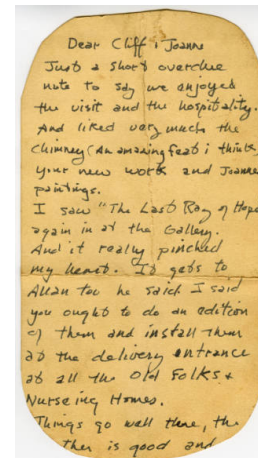 Dear Cliff & Joanne
Just a short overdue
note to say we enjoyed
the visit and the hospitality.
And liked very much the
chimney (An amazing feat i think,
your new work and Joanne
paintings.
I saw "The Last Ray of Hope
again in at the Gallery.
And it really pinched
my heart. It gets to
Allan too he said. I said
you ought to do an edition
of them and install them
at the delivery entrance
at all the Old Folks &
Nurseing Homes.
Things go well there, the
ther is good and